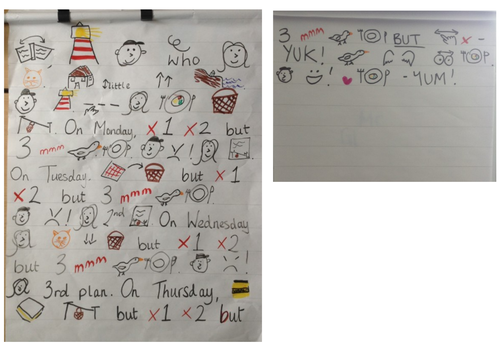 who
little
On Monday, x1 x2 but
3 mmm . ! .
On Tuesday. but x1
x2 but 3 mmm .
! 2nd On Wednesday
but x1 x2
but 3 mmm . !
3rd plan. On Thursday,
but x1 x2 but
3 mmm BUT x -
YUK!
! - YUM!